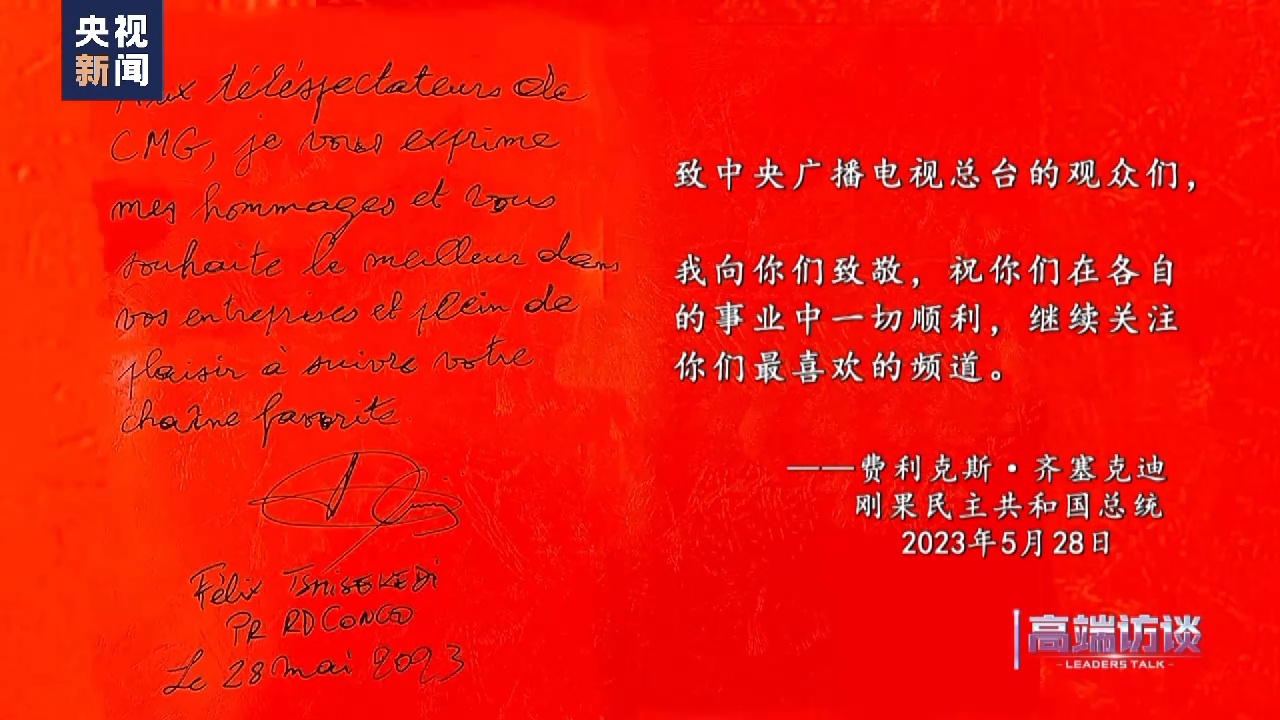 央视
新闻
Aux téléspectateurs de
CMG, je vous exprime
mes hommages et vous
souhaite le meilleur dans
vos entreprises et plein de
plaisir à suivre votre
chaîne favorite
Félix TSHISEKEDI
PR RD CONGO
Le 28 mai 2023
致中央广播电视总台的观众们，
我向你们致敬，祝你们在各自
的事业中一切顺利，继续关注
你们最喜欢的频道。
——费利克斯·齐塞克迪
刚果民主共和国总统
2023年5月28日
高端访谈
-LEADERS TALK-